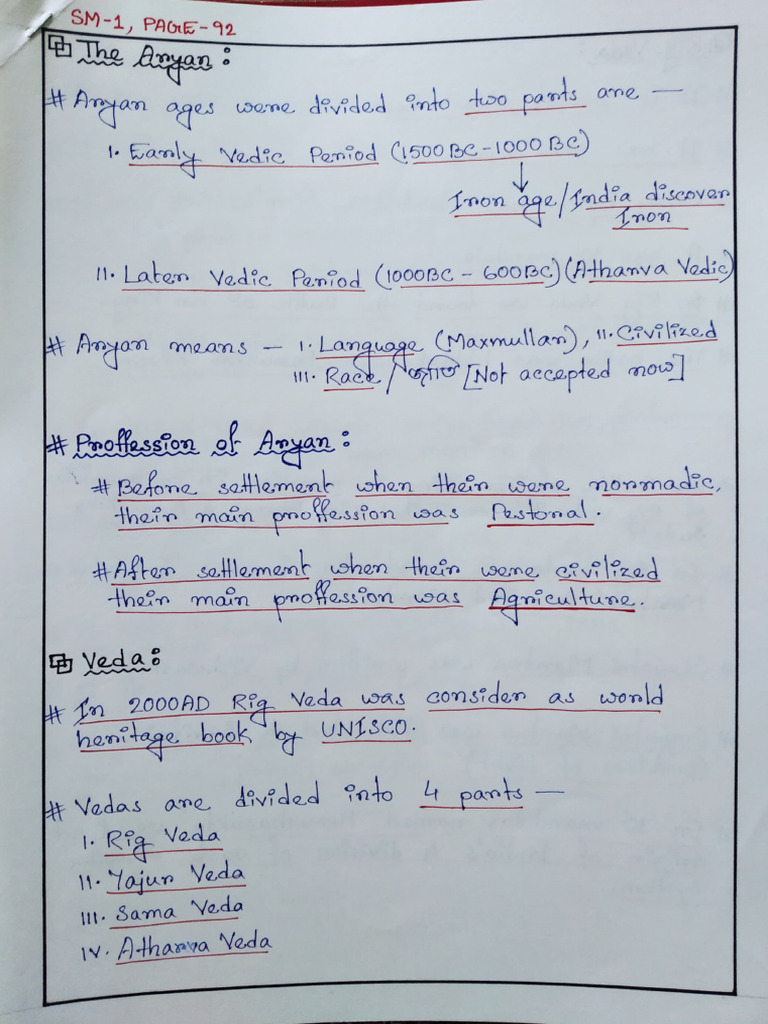 SM-1, PAGE-92
The Aryan:
# Aryan ages were divided into two parts are —
I. Early Vedic Period (1500BC-1000BC)
↓
Iron age/India discover
Iron
II. Later Vedic Period (1000BC - 600BC)(Atharva Vedic)
# Aryan means — I. Language (Maxmullar), II. Civilized
III. Race / জাতি [Not accepted now]
# Proffession of Aryan:
# Before settlement when their were nonmadic,
their main proffession was Pestoral.
# After settlement when their were civilized
their main proffession was Agriculture.
Veda:
# In 2000AD Rig Veda was consider as world
heritage book by UNISCO.
# Vedas are divided into 4 parts —
I. Rig Veda
II. Yajur Veda
III. Sama Veda
IV. Atharva Veda